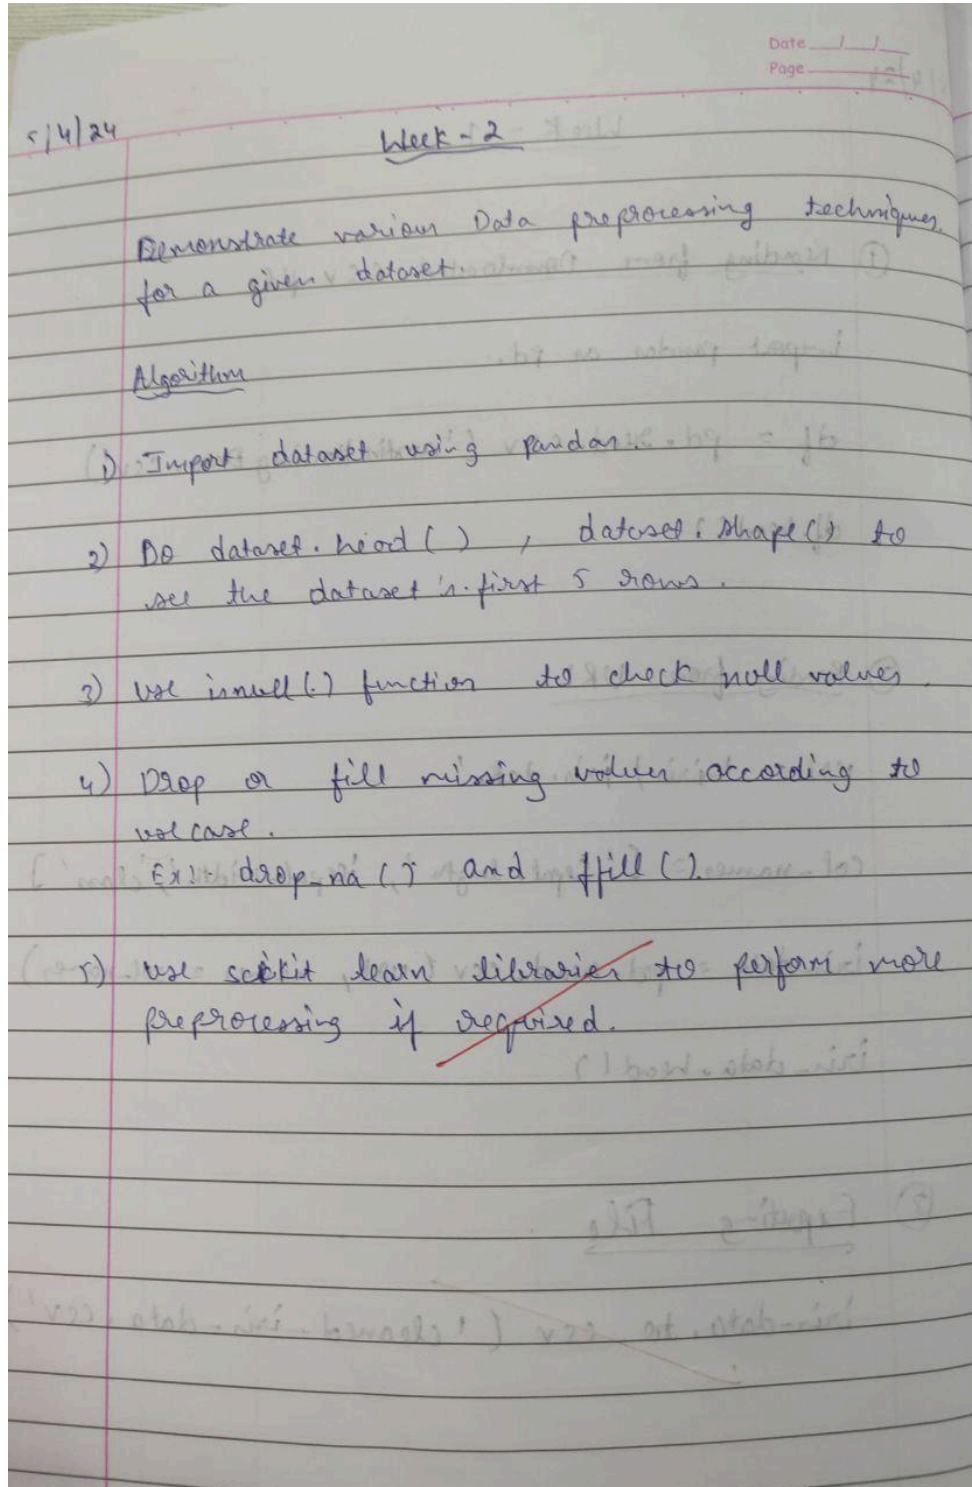 Date __/__/__
Page
5/4/24
Week - 2
Demonstrate various Data preprocessing techniques
for a given dataset.
Algorithm
1) Import dataset using pandas.
2) Do dataset.head ( ) , dataset.shape ( ) to
see the dataset's first 5 rows.
3) Use isnull(.) function to check null values.
4) Drop or fill missing values according to
usecase.
Ex:- drop_na () and ffill ().
5) use scikit learn libraries to perform more
preprocessing if required.